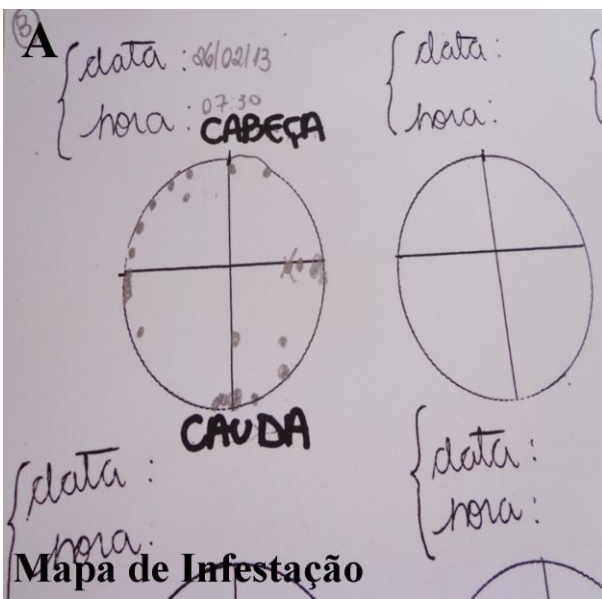 3
A
data : 26/02/13
hora : 07:30
CABEÇA
CAUDA
data :
hora :
data :
hora :
data :
hora :
Mapa de Infestação